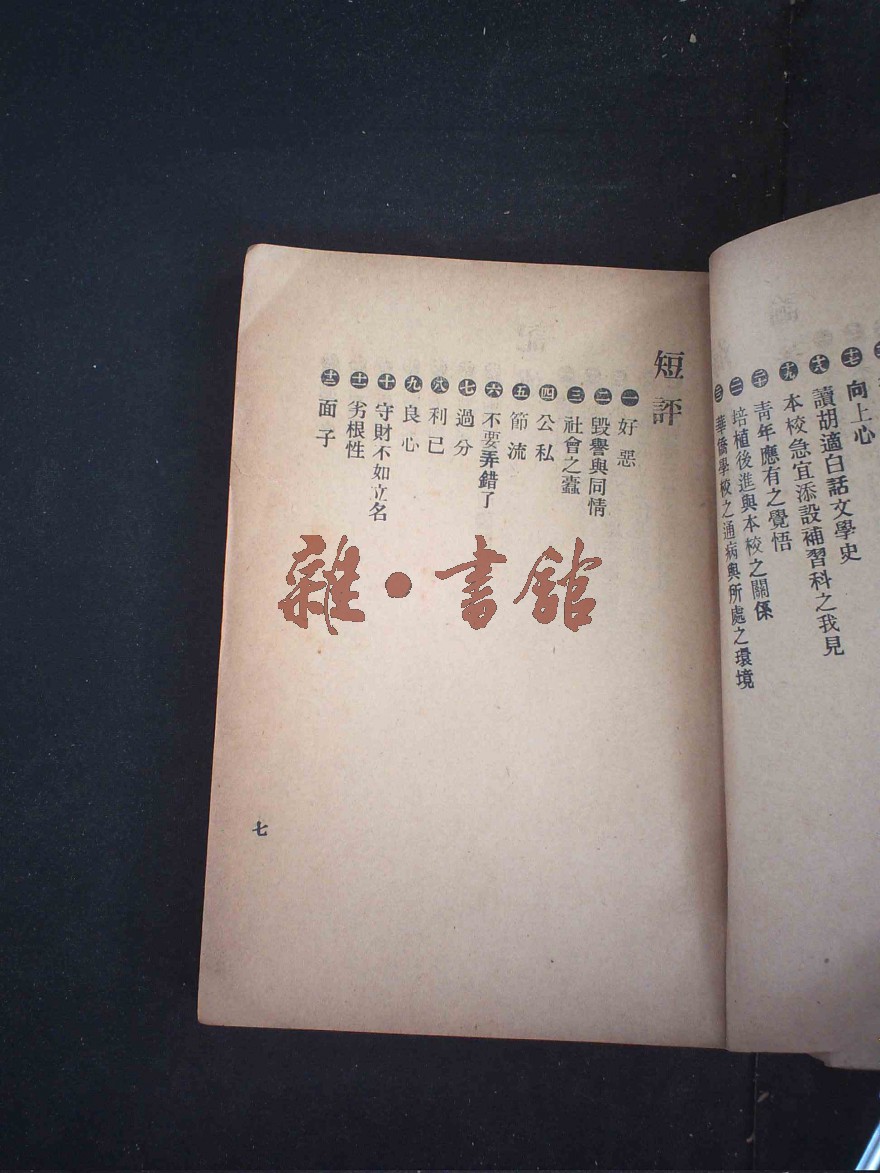 十七 向上心
十八 讀胡適白話文學史
十九 本校急宜添設補習科之我見
二十 青年應有之覺悟
二一 培植後進與本校之關係
華僑學校之通病與所處之環境
短評
一 好惡
二 毀譽與同情
三 社會之蠹
四 公私
五 節流
六 不要弄錯了
七 過分
八 利己
九 良心
十 守財不如立名
十一 劣根性
十二 面子
七
雜·書館